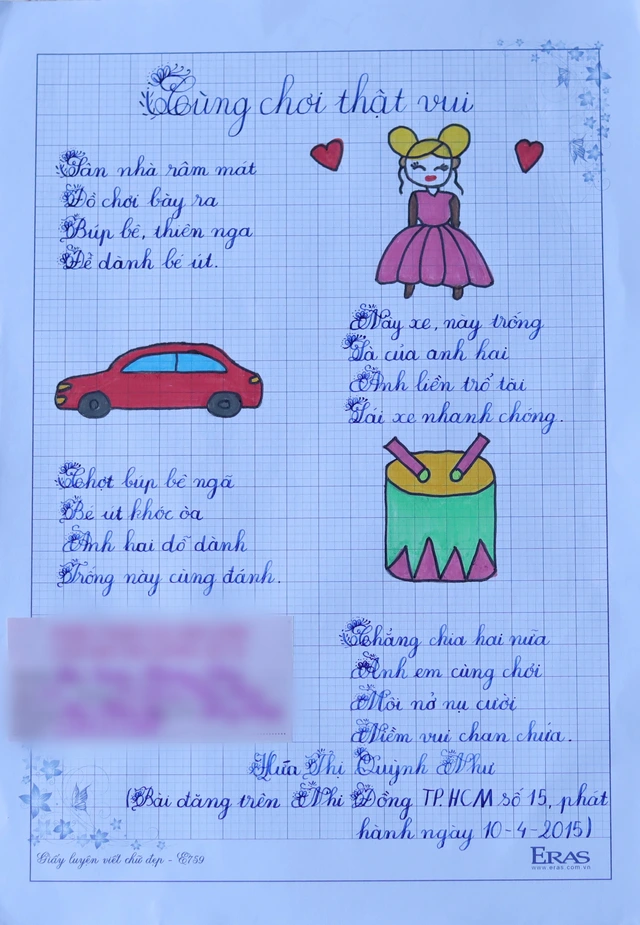 Cùng chơi thật vui
Sân nhà râm mát
Đồ chơi bày ra
Búp bê, thiên nga
Để dành bé út.
Này xe, này trống
Là của anh hai
Anh liền trổ tài
Lái xe nhanh chóng.
Chợt búp bê ngã
Bé út khóc òa
Anh hai dỗ dành
Trống này cùng đánh.
Chẳng chia hai nữa
Anh em cùng chơi
Môi nở nụ cười
Niềm vui chan chứa.
Hứa Thị Quỳnh Như
(Bài đăng trên Nhi Đồng TP.HCM số 15, phát
hành ngày 10-4-2015)
Giấy luyện viết chữ đẹp - E759
ERAS
www.eras.com.vn